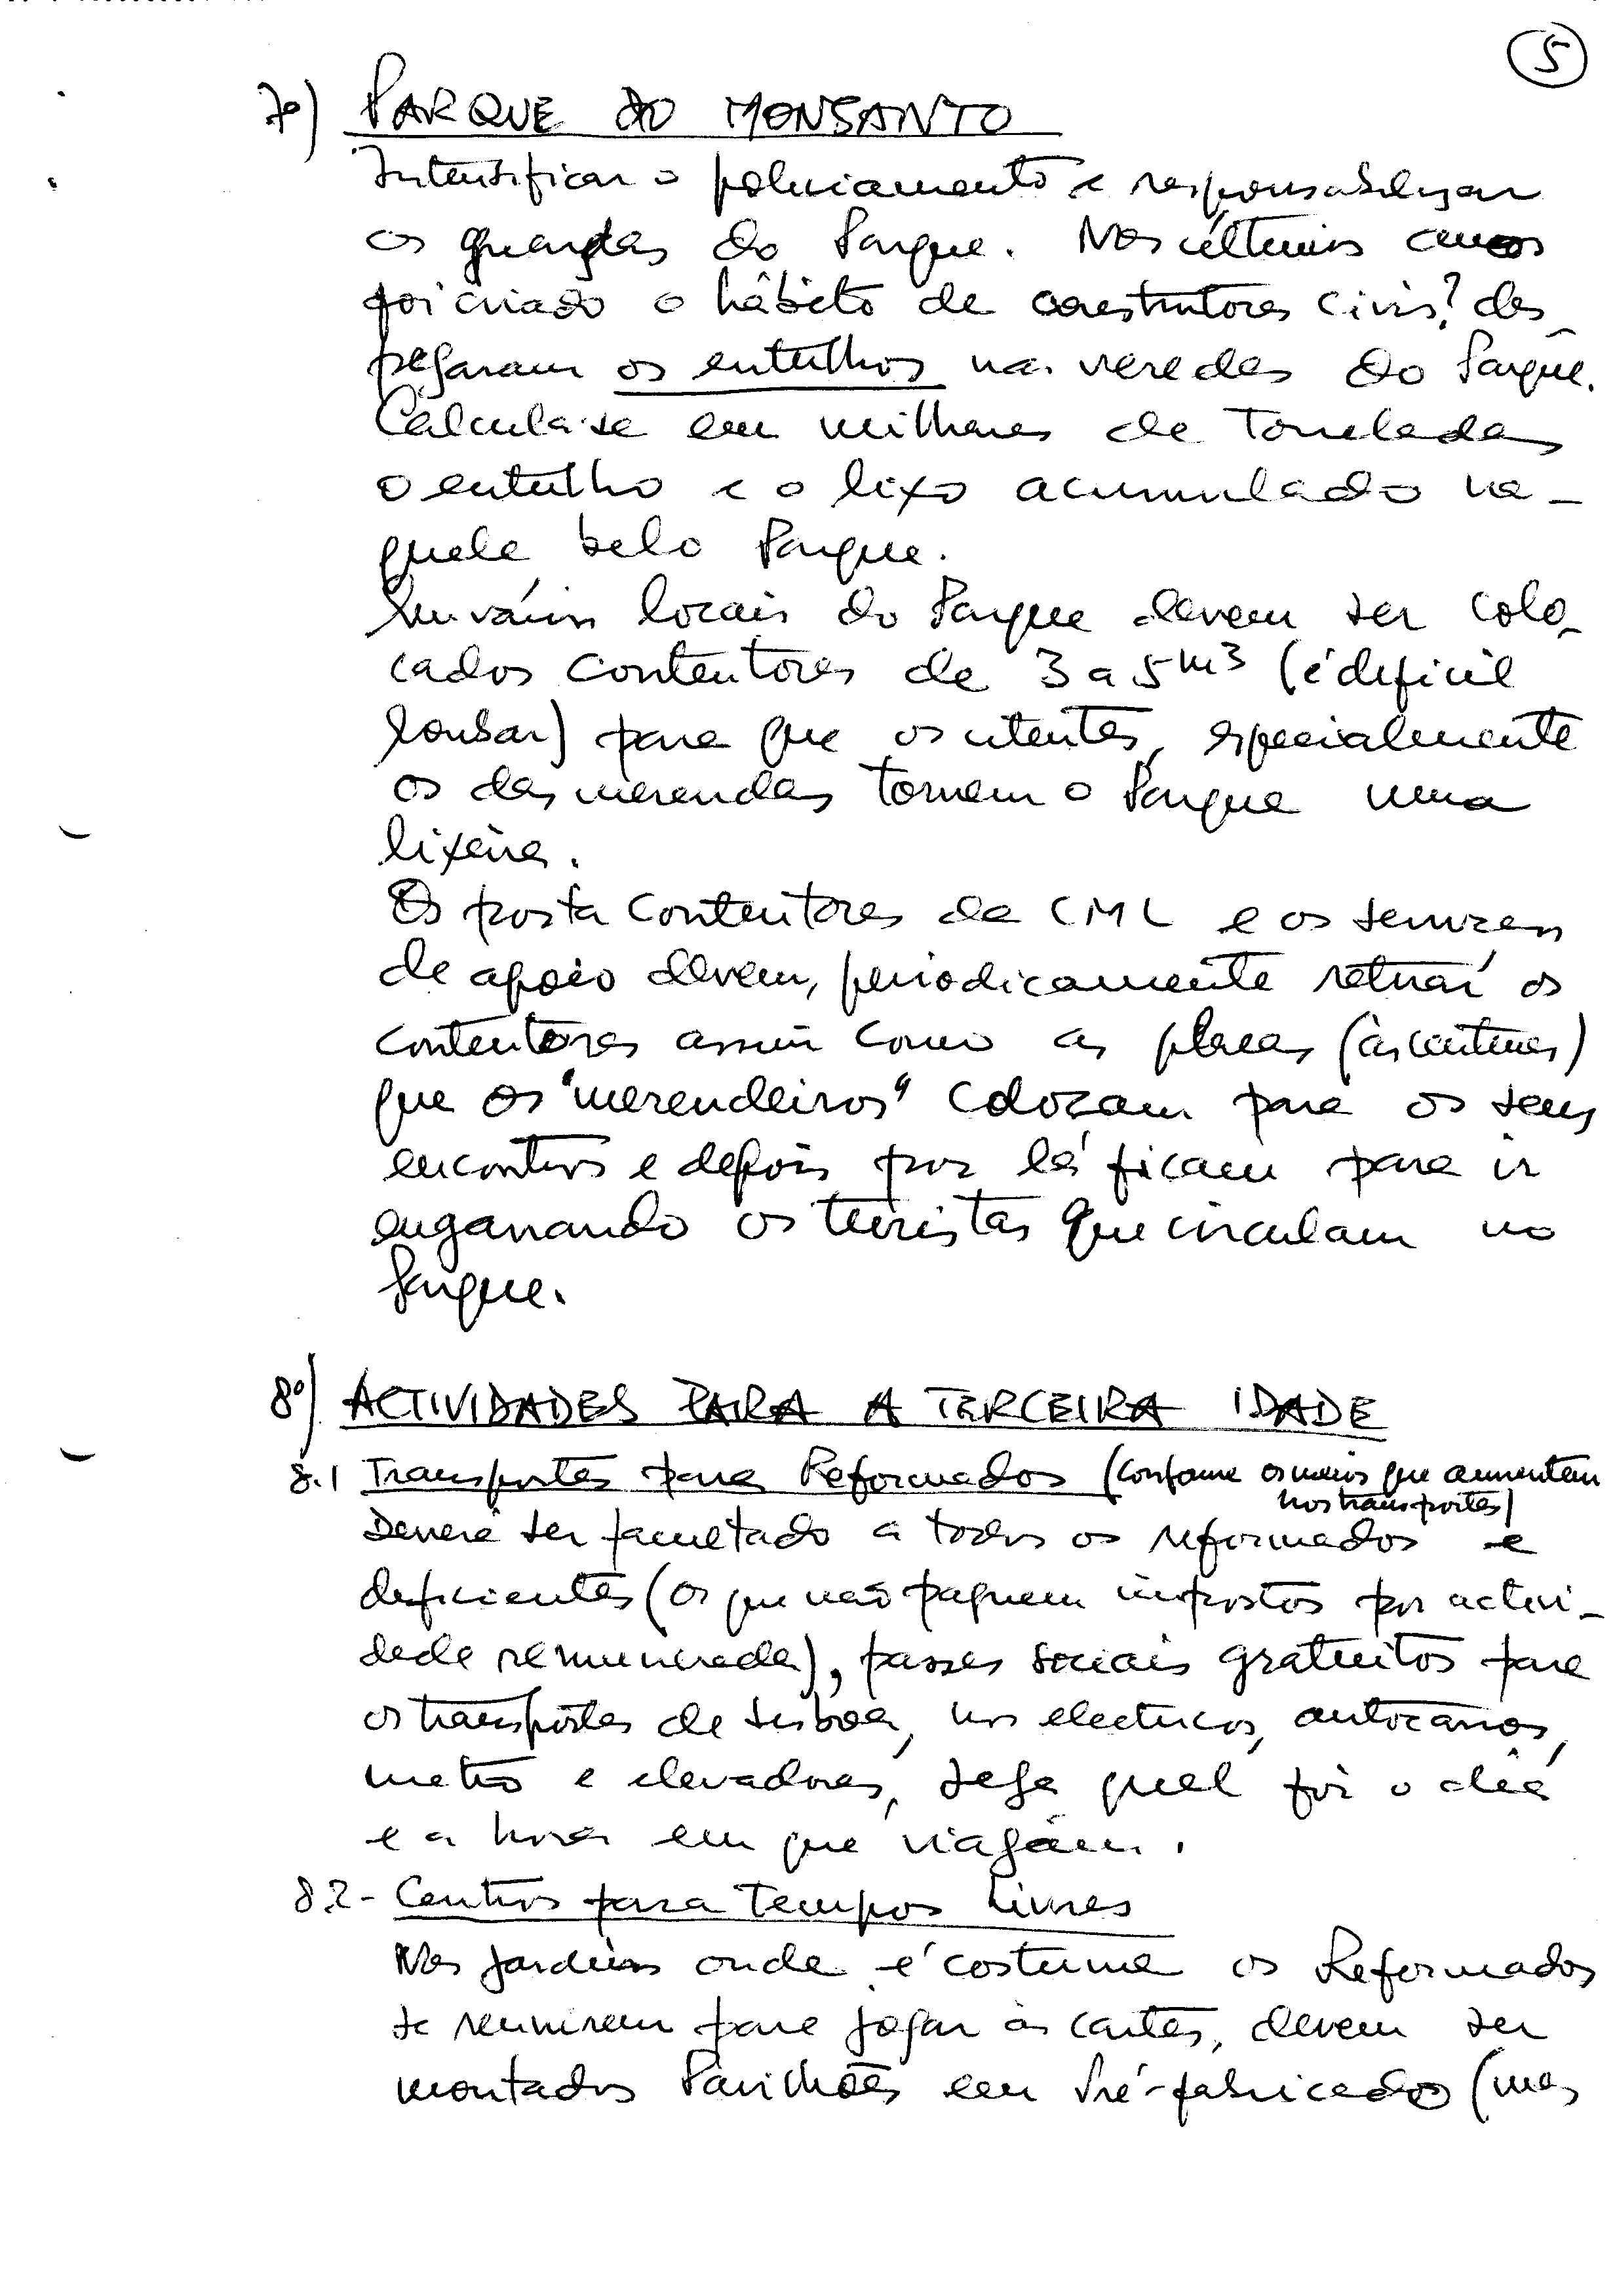 5
7º) PARQUE DO MONSANTO
Intensificar o policiamento e responsabilizar
os guardas do Parque. Nos últimos anos
foi criado o hábito de construtores civis? des
pejaram os entulhos nas veredas do Parque.
Calcula-se em milhares de Toneladas
o entulho e o lixo acumulado na-
quele belo Parque.
Em vários locais do Parque devem ser colo-
cados contentores de 3 a 5 m3 (é dificil
roubar) para que os utentes, especialmente
os das merendas tornem o Parque uma
lixeira.
Os porta contentores da CML e os serviços
de apoio devem, periodicamente retirar os
contentores assim como as placas (às centenas)
que os "merendeiros" colocam para os seus
encontros e depois por lá ficam para ir
enganando os turistas que circulam no
Parque.
8º) ACTIVIDADES PARA A TERCEIRA IDADE
8.1 Transportes para Reformados (conforme os meios que aumentem
nos transportes)
Deverá ser facultado a todos os reformados e
deficientes (os que não paguem impostos por activi-
dade remunerada), passes sociais gratuitos para
os transportes de Lisboa, nos electricos, autocarros,
metro e elevadores, seja qual for o dia
e a hora em que viajam.
8.2 - Centros para Tempos Livres
Nos jardins onde é costume os Reformados
se reunirem para jogar às cartas, devem ser
montados Pavilhões em Pré-fabricados (mas